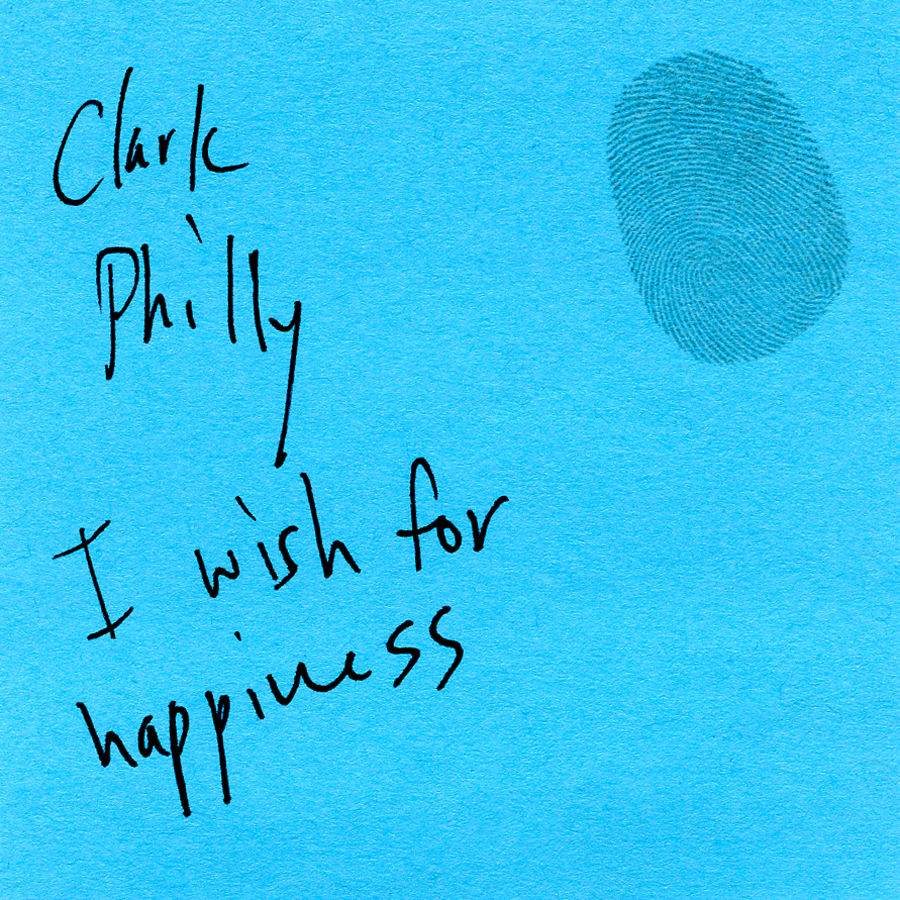 Clark
Philly
I wish for
happiness